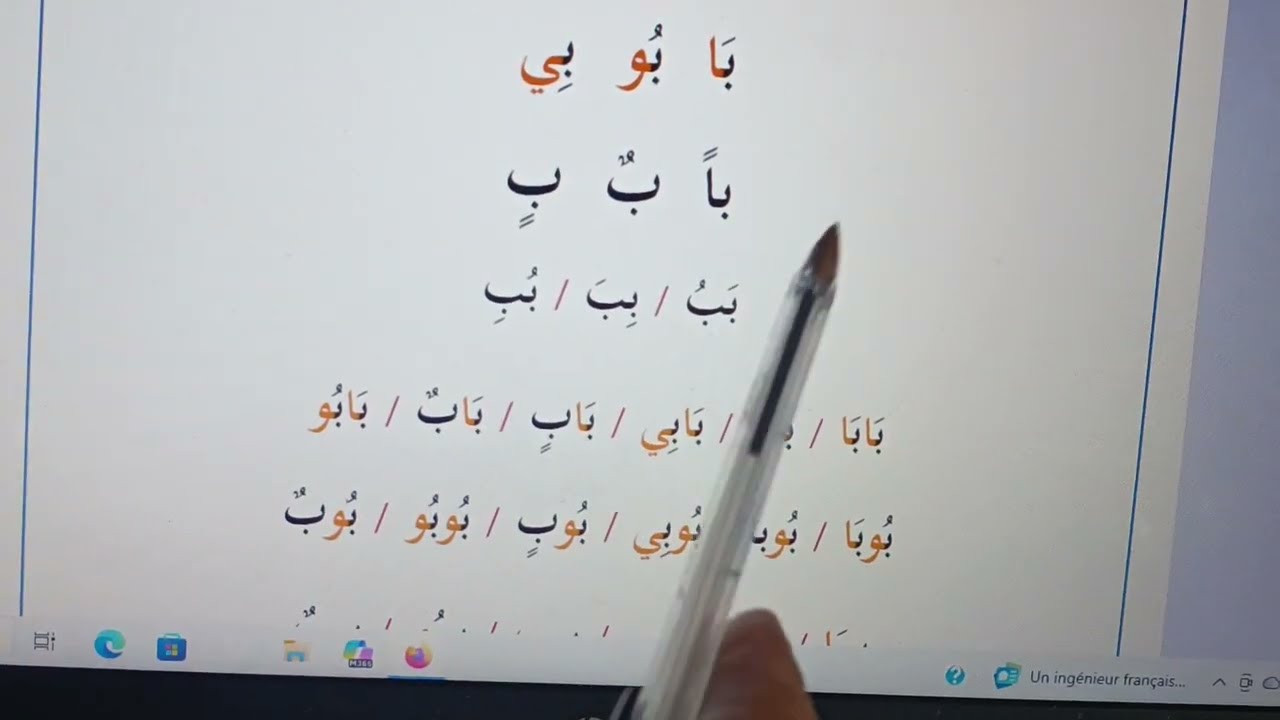 بَا بُو بِي
باً بٌ بٍ
بَبُ / بِبَ / بُبِ
بَابَا / / بَابِي / بَابٍ / بَابٌ / بَابُو
بُوبَا / / بُوبِي / بُوبٍ / بُوبُو / بُوبٌ
M365
Un ingénieur français...